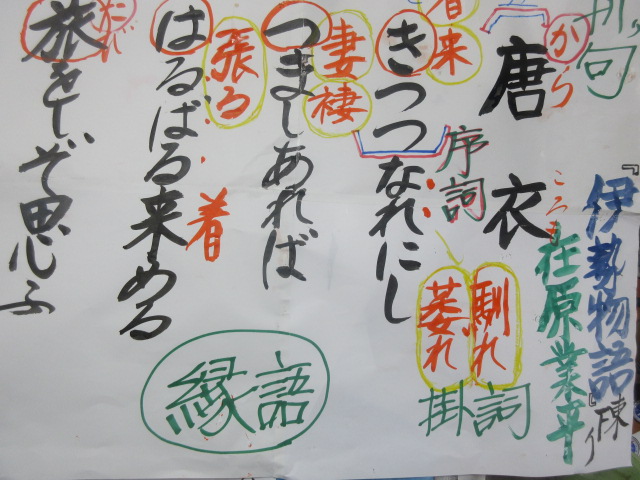 俳句
『伊勢物語』
在原業平
から
ころも
唐衣
序詞
馴れ
萎れ
掛詞
着来
きつつなれにし
妻
褄
つましあれば
張る
着
はるばる来ぬる
旅をしぞ思ふ
縁語